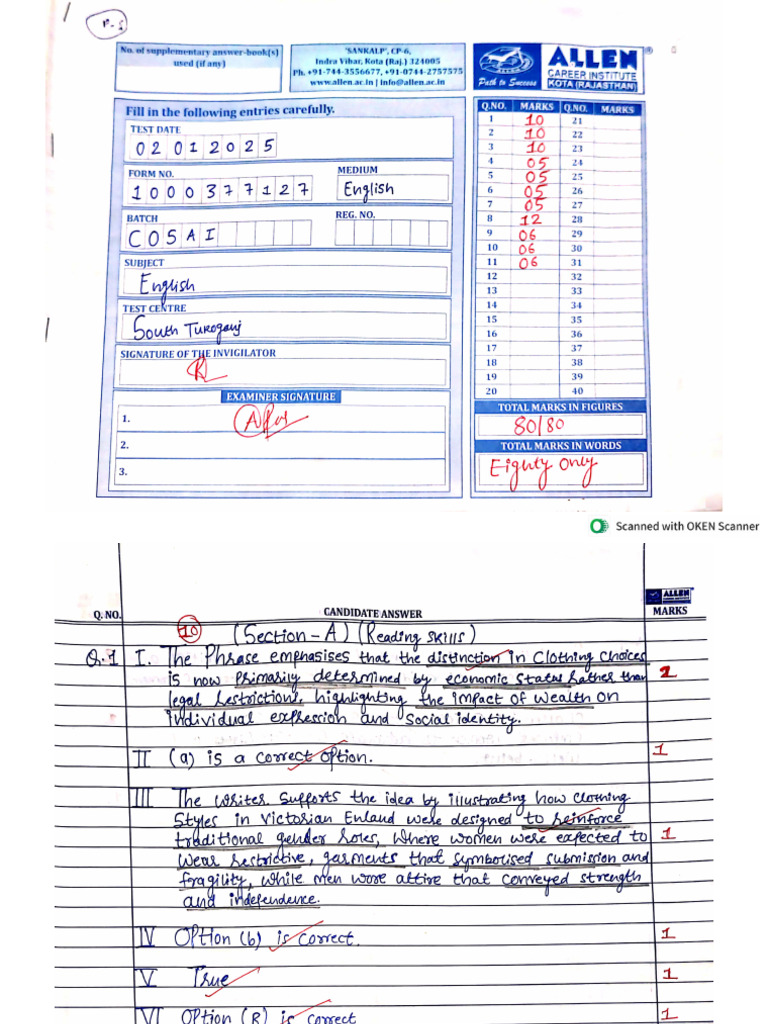 P-5
No. of supplementary answer-book(s)
used (if any)
"SANKALP", CP-6,
Indra Vihar, Kota (Raj.) 324005
Ph. +91-744-3556677, +91-0744-2757575
www.allen.ac.in | info@allen.ac.in
Path to Success
ALLEN®
CAREER INSTITUTE
KOTA (RAJASTHAN)
Fill in the following entries carefully.
TEST DATE
02 01 2025
FORM NO.
1000377127
MEDIUM
English
BATCH
C05AI
REG. NO.
SUBJECT
English
TEST CENTRE
South Tukoganj
SIGNATURE OF THE INVIGILATOR
EXAMINER SIGNATURE
1.
2.
3.
Q.NO. MARKS Q.NO. MARKS
1 10 21
2 10 22
3 10 23
4 05 24
5 05 25
6 05 26
7 05 27
8 12 28
9 06 29
10 06 30
11 06 31
12 32
13 33
14 34
15 35
16 36
17 37
18 38
19 39
20 40
TOTAL MARKS IN FIGURES
80/80
TOTAL MARKS IN WORDS
Eighty Only
Scanned with OKEN Scanner
Q. NO. CANDIDATE ANSWER ALLEN MARKS
10 (Section - A) (Reading skills)
Q.1 I. The Phrase emphasises that the distinction in Clothing Choices
is now Primarily determined by economic status Rather than 1
legal Restrictions, highlighting the impact of wealth on
individual expression and Social identity.
II (a) is a correct option. 1
III The writer Supports the idea by illustrating how clothing
Styles in Victorian Enland were designed to reinforce
traditional gender roles, where women were expected to 1
wear restrictive, garments that symbolised submission and
fragility, while men wore attire that conveyed strength
and independence.
IV Option (b) is correct. 1
V True 1
VI Option (R) is correct 1